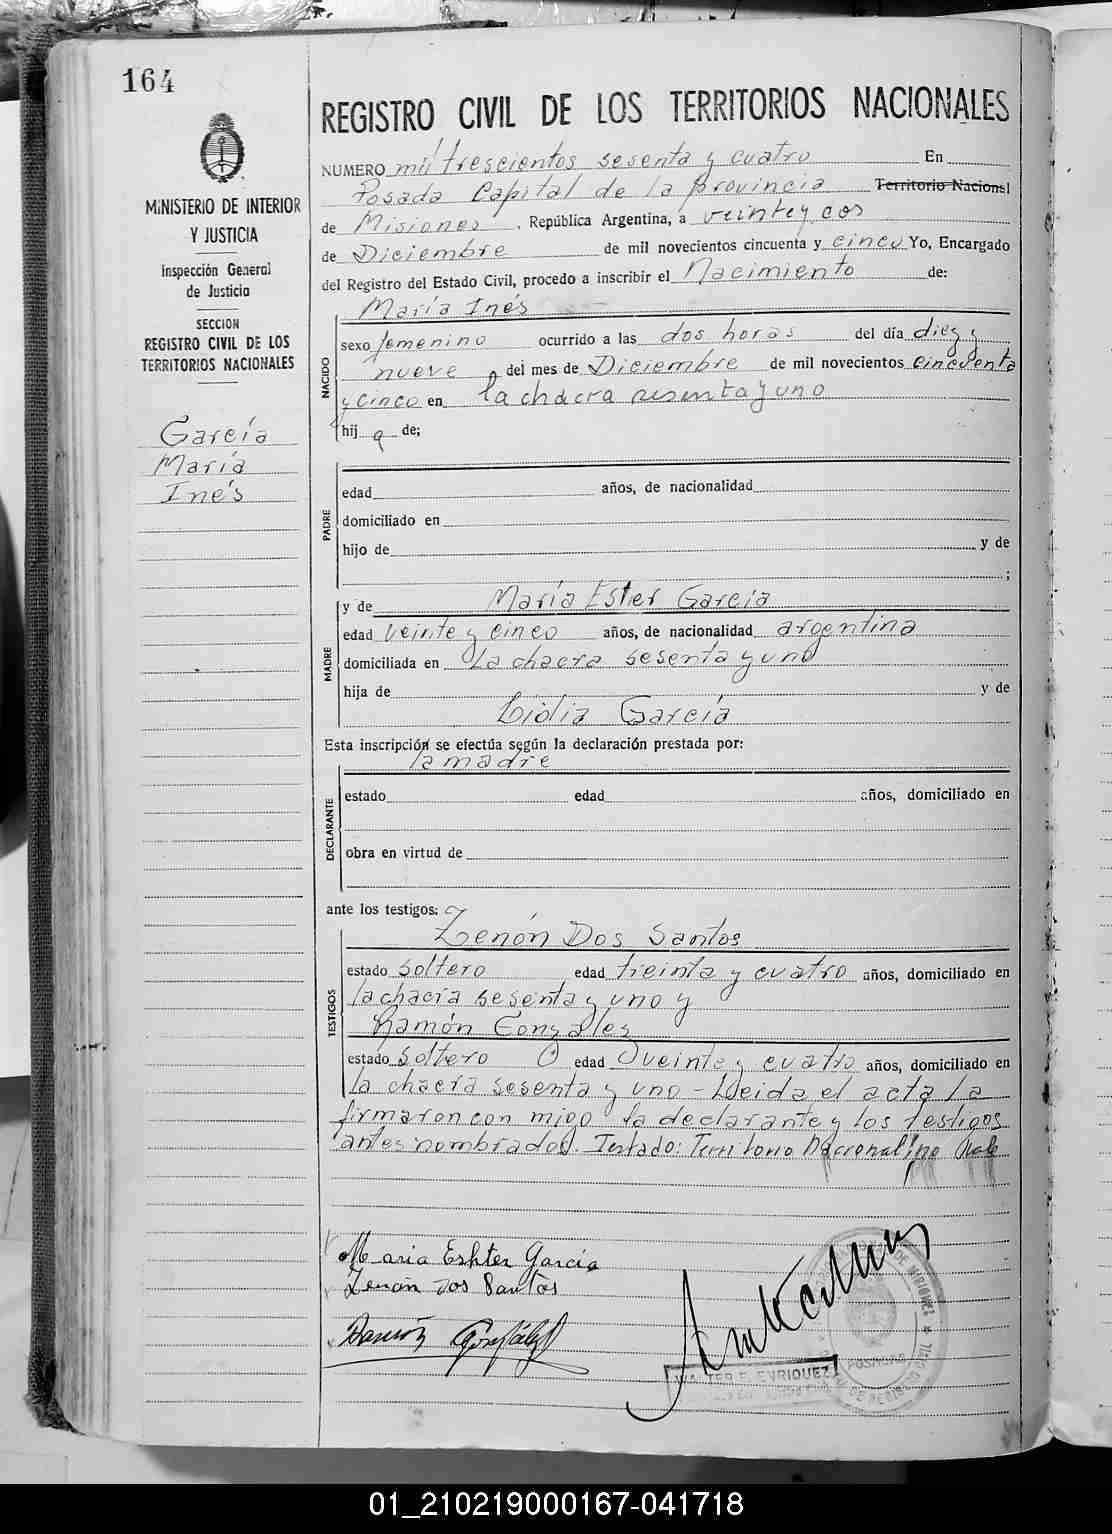 164
MINISTERIO DE INTERIOR
Y JUSTICIA
Inspección General
de Justicia
SECCION
REGISTRO CIVIL DE LOS
TERRITORIOS NACIONALES
García
María
Inés
REGISTRO CIVIL DE LOS TERRITORIOS NACIONALES
NUMERO mil trescientos sesenta y cuatro En
Posada Capital de la provincia Territorio Nacional
de Misiones, República Argentina, a veinte y dos
de Diciembre de mil novecientos cincuenta y cinco Yo, Encargado
del Registro del Estado Civil, procedo a inscribir el Nacimiento de:
María Inés
NACIDO
sexo femenino ocurrido a las dos horas del día diez y
nueve del mes de Diciembre de mil novecientos cincuenta
y cinco en la chacra sesenta y uno
hij a de;
PADRE
edad años, de nacionalidad
domiciliado en
hijo de y de
;
MADRE
y de María Ester García
edad veinte y cinco años, de nacionalidad argentina
domiciliada en la chacra sesenta y uno
hija de y de
Lidia García
Esta inscripción se efectúa según la declaración prestada por:
la madre
DECLARANTE
estado edad años, domiciliado en
obra en virtud de
ante los testigos:
Zenón Dos Santos
TESTIGOS
estado soltero edad treinta y cuatro años, domiciliado en
la chacra sesenta y uno y
Ramón Gonzáles
estado soltero edad veinte y cuatro años, domiciliado en
la chacra sesenta y uno - Leida el acta la
firmaron con migo la declarante y los testigos
antes nombrados. Testado: Territorio Nacional no Vale
Maria Eshter Garcia
Zenón Dos Santos
Ramón Gonzáles
WALTER E. ENRIQUEZ
POSADAS
01_210219000167-041718